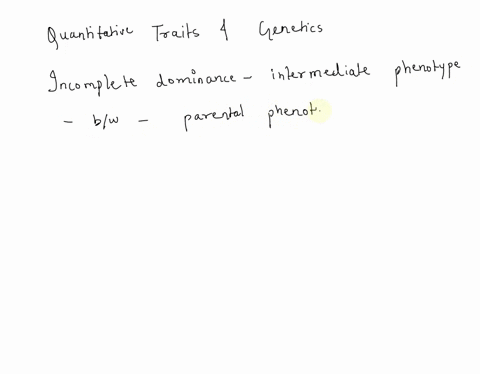 Quantitative Traits & Genetics
Incomplete dominance - intermediate phenotype
- b/w - parental phenot.